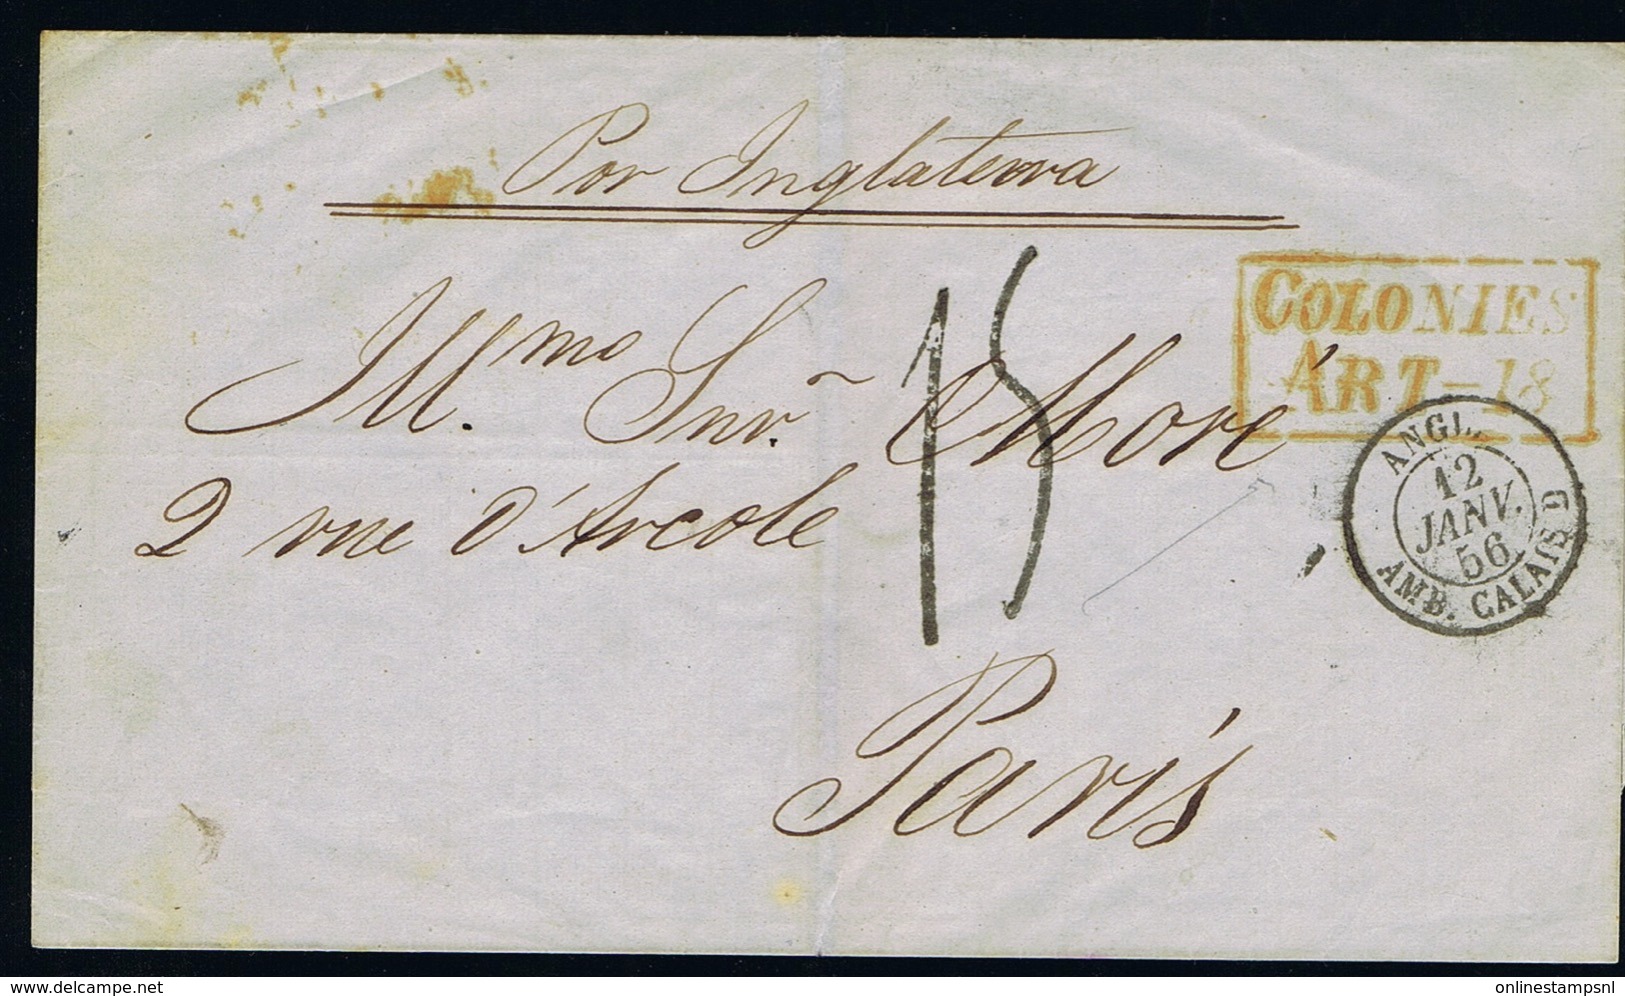 Por Inglaterra
COLONIES
ART-18
Mmo. Snr. Moré
15
2 rue d'Arcole
ANGL.
12
JANV.
56
AMB. CALAIS D
Paris
delcampe.net
onlinestampsnl